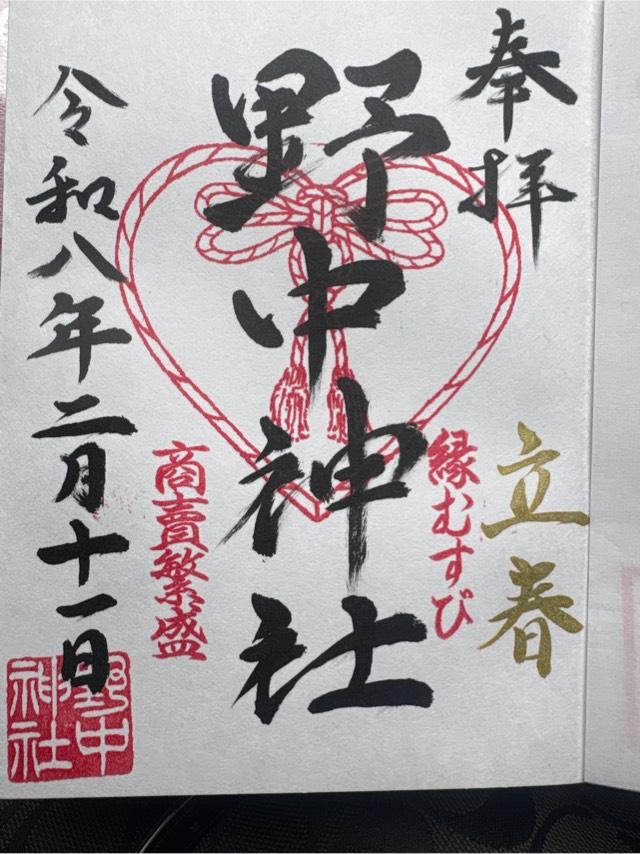 奉拝
立春
縁むすび
野中神社
商賣繁盛
令和八年二月十一日
野中神社